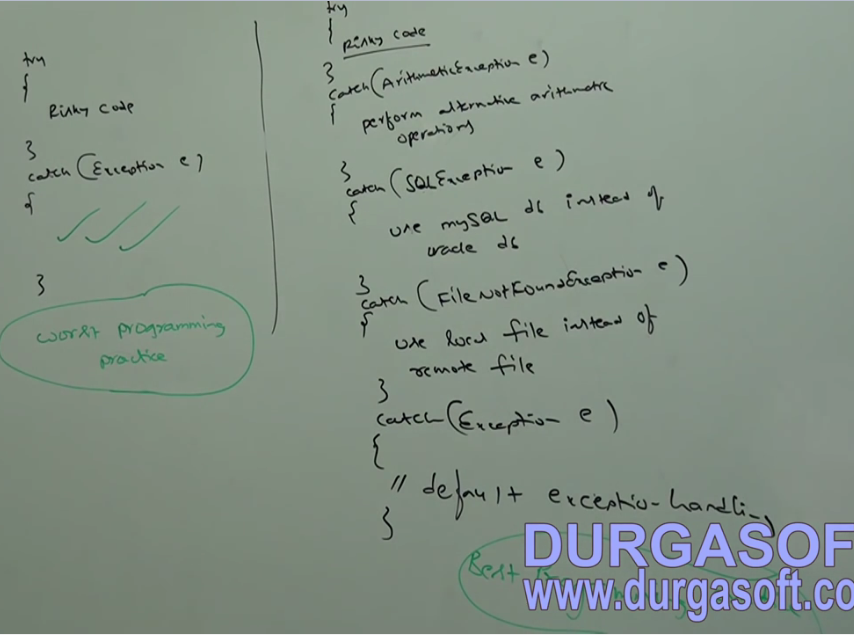 try
{
Risky code
}
catch(Exception e)
{
}
worst programming
practice
try
{
Risky code
}
catch(ArithmeticException e)
{
perform alternative arithmetic
operations
}
catch(SQLException e)
{
use mySQL db instead of
oracle db
}
catch(FileNotFoundException e)
{
use local file instead of
remote file
}
catch(Exception e)
{
// default exception handling
}
Best
DURGASOF
www.durgasoft.co